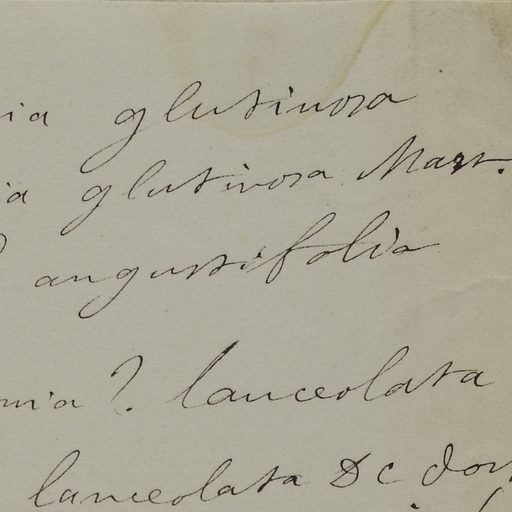 nia glutinosa
ia glutinosa Mart.
angustifolia
mia ? lanceolata
lanceolata DC